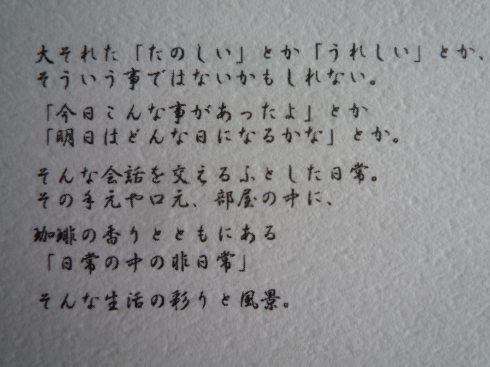 大それた「たのしい」とか「うれしい」とか、
そういう事ではないかもしれない。
「今日こんな事があったよ」とか
「明日はどんな日になるかな」とか。
そんな会話を交えるふとした日常。
その手元や口元、部屋の中に、
珈琲の香りとともにある
「日常の中の非日常」
そんな生活の彩りと風景。